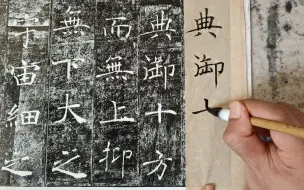 典御十
典御十方
而無上抑
無下大之
宇宙細之